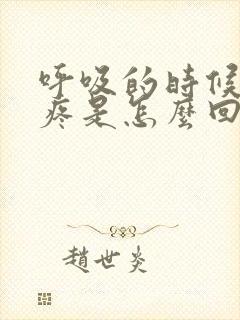 呼吸的時候
疼是怎麼回
趙世炎